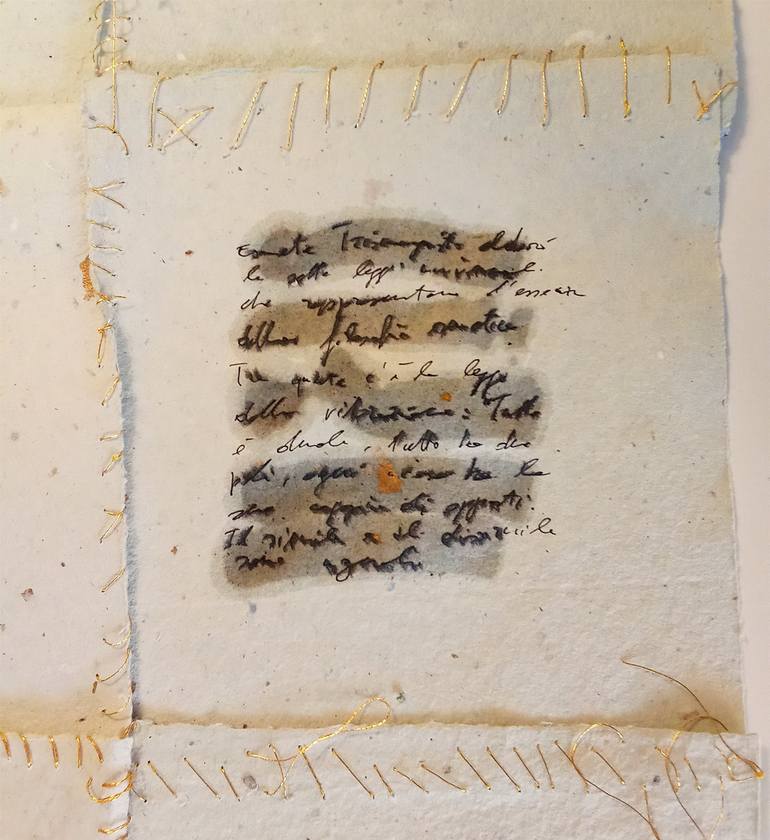 Ermete Trismegisto elaborò
le sette leggi universali
che rappresentano l'essenza
della filosofia ermetica
Tra queste c'è la legge
della vibrazione: Tutto
è duale, tutto ha due
poli, ogni cosa ha la
sua coppia di opposti.
Il simile e il dissimile
sono uguali